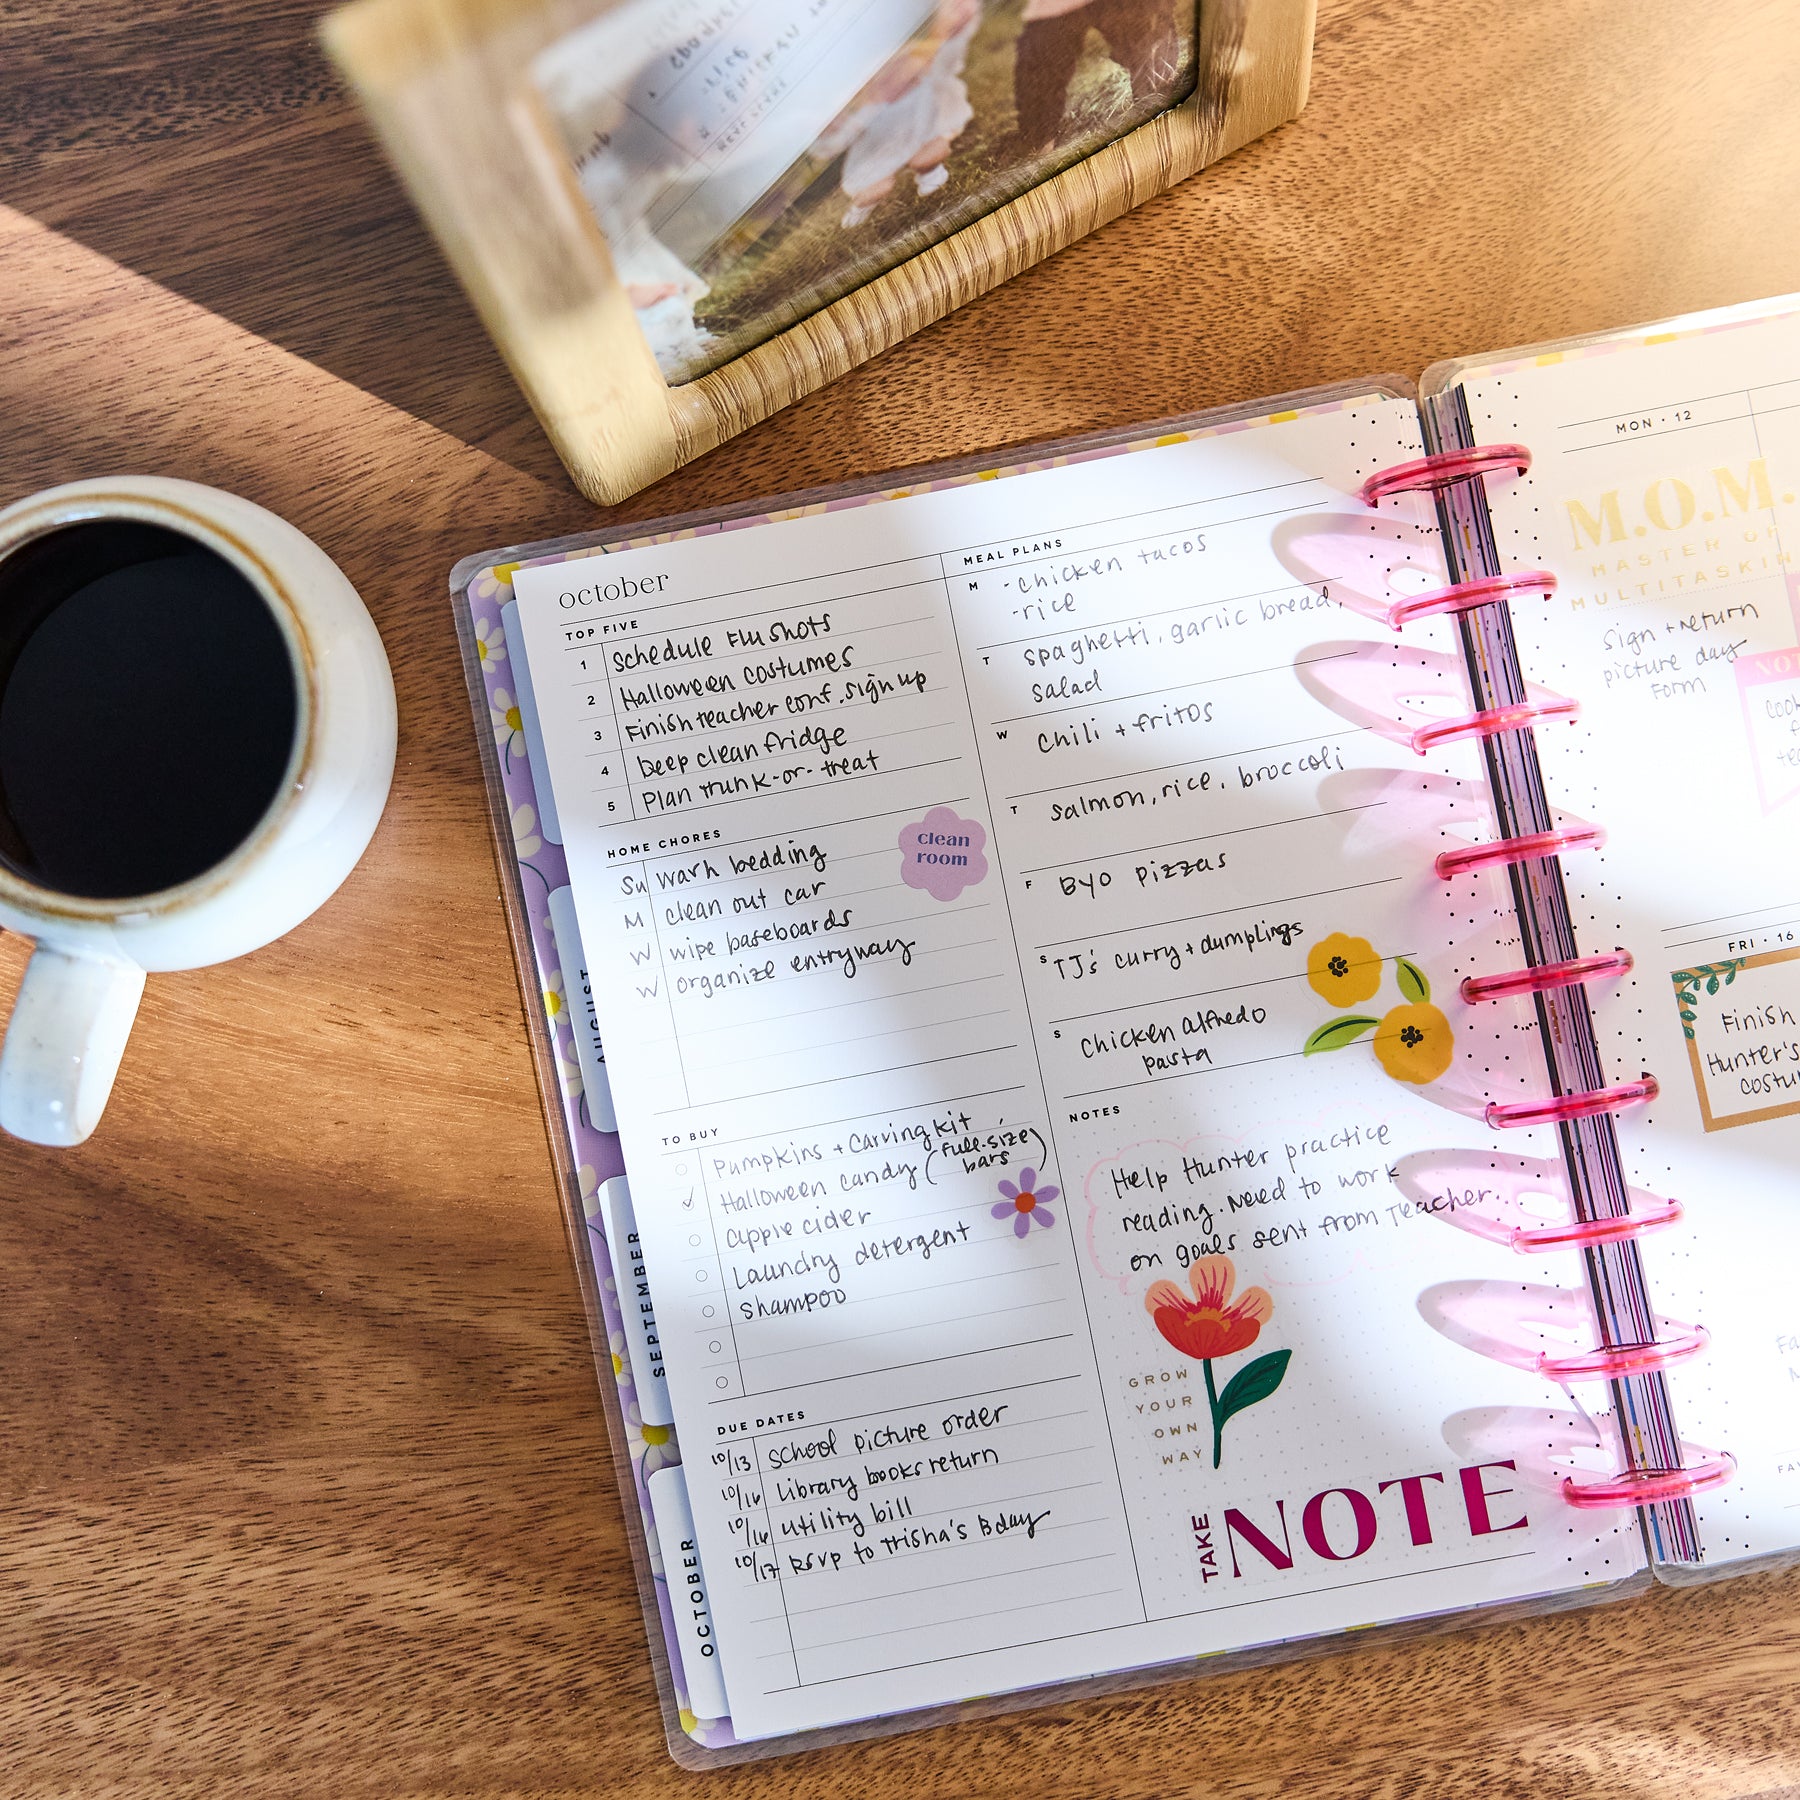 october
TOP FIVE
1 Schedule Flu Shots
2 Halloween costumes
3 Finish teacher conf. sign up
4 Deep clean fridge
5 Plan trunk-or-treat
HOME CHORES
clean
room
Su wash bedding
M clean out car
W wipe baseboards
W organize entryway
TO BUY
Pumpkins + Carving kit
✓ Halloween candy (full-size
bars)
apple cider
Laundry detergent
shampoo
DUE DATES
10/13 School picture order
10/16 Library books return
10/16 Utility bill
10/17 RSVP to Trisha's Bday
MEAL PLANS
M - chicken tacos
- rice
T spaghetti, garlic bread,
salad
W Chili + fritos
T salmon, rice, broccoli
F BYO Pizzas
S TJ's curry + dumplings
S Chicken alfredo
pasta
NOTES
Help Hunter practice
reading. Need to work
on goals sent from Teacher.
GROW
YOUR
OWN
WAY
TAKE
NOTE
AUGUST
SEPTEMBER
OCTOBER
MON · 12
M.O.M.
MASTER OF
MULTITASKIN
Sign + return
picture day
Form
FRI · 16
Finish
Hunter's